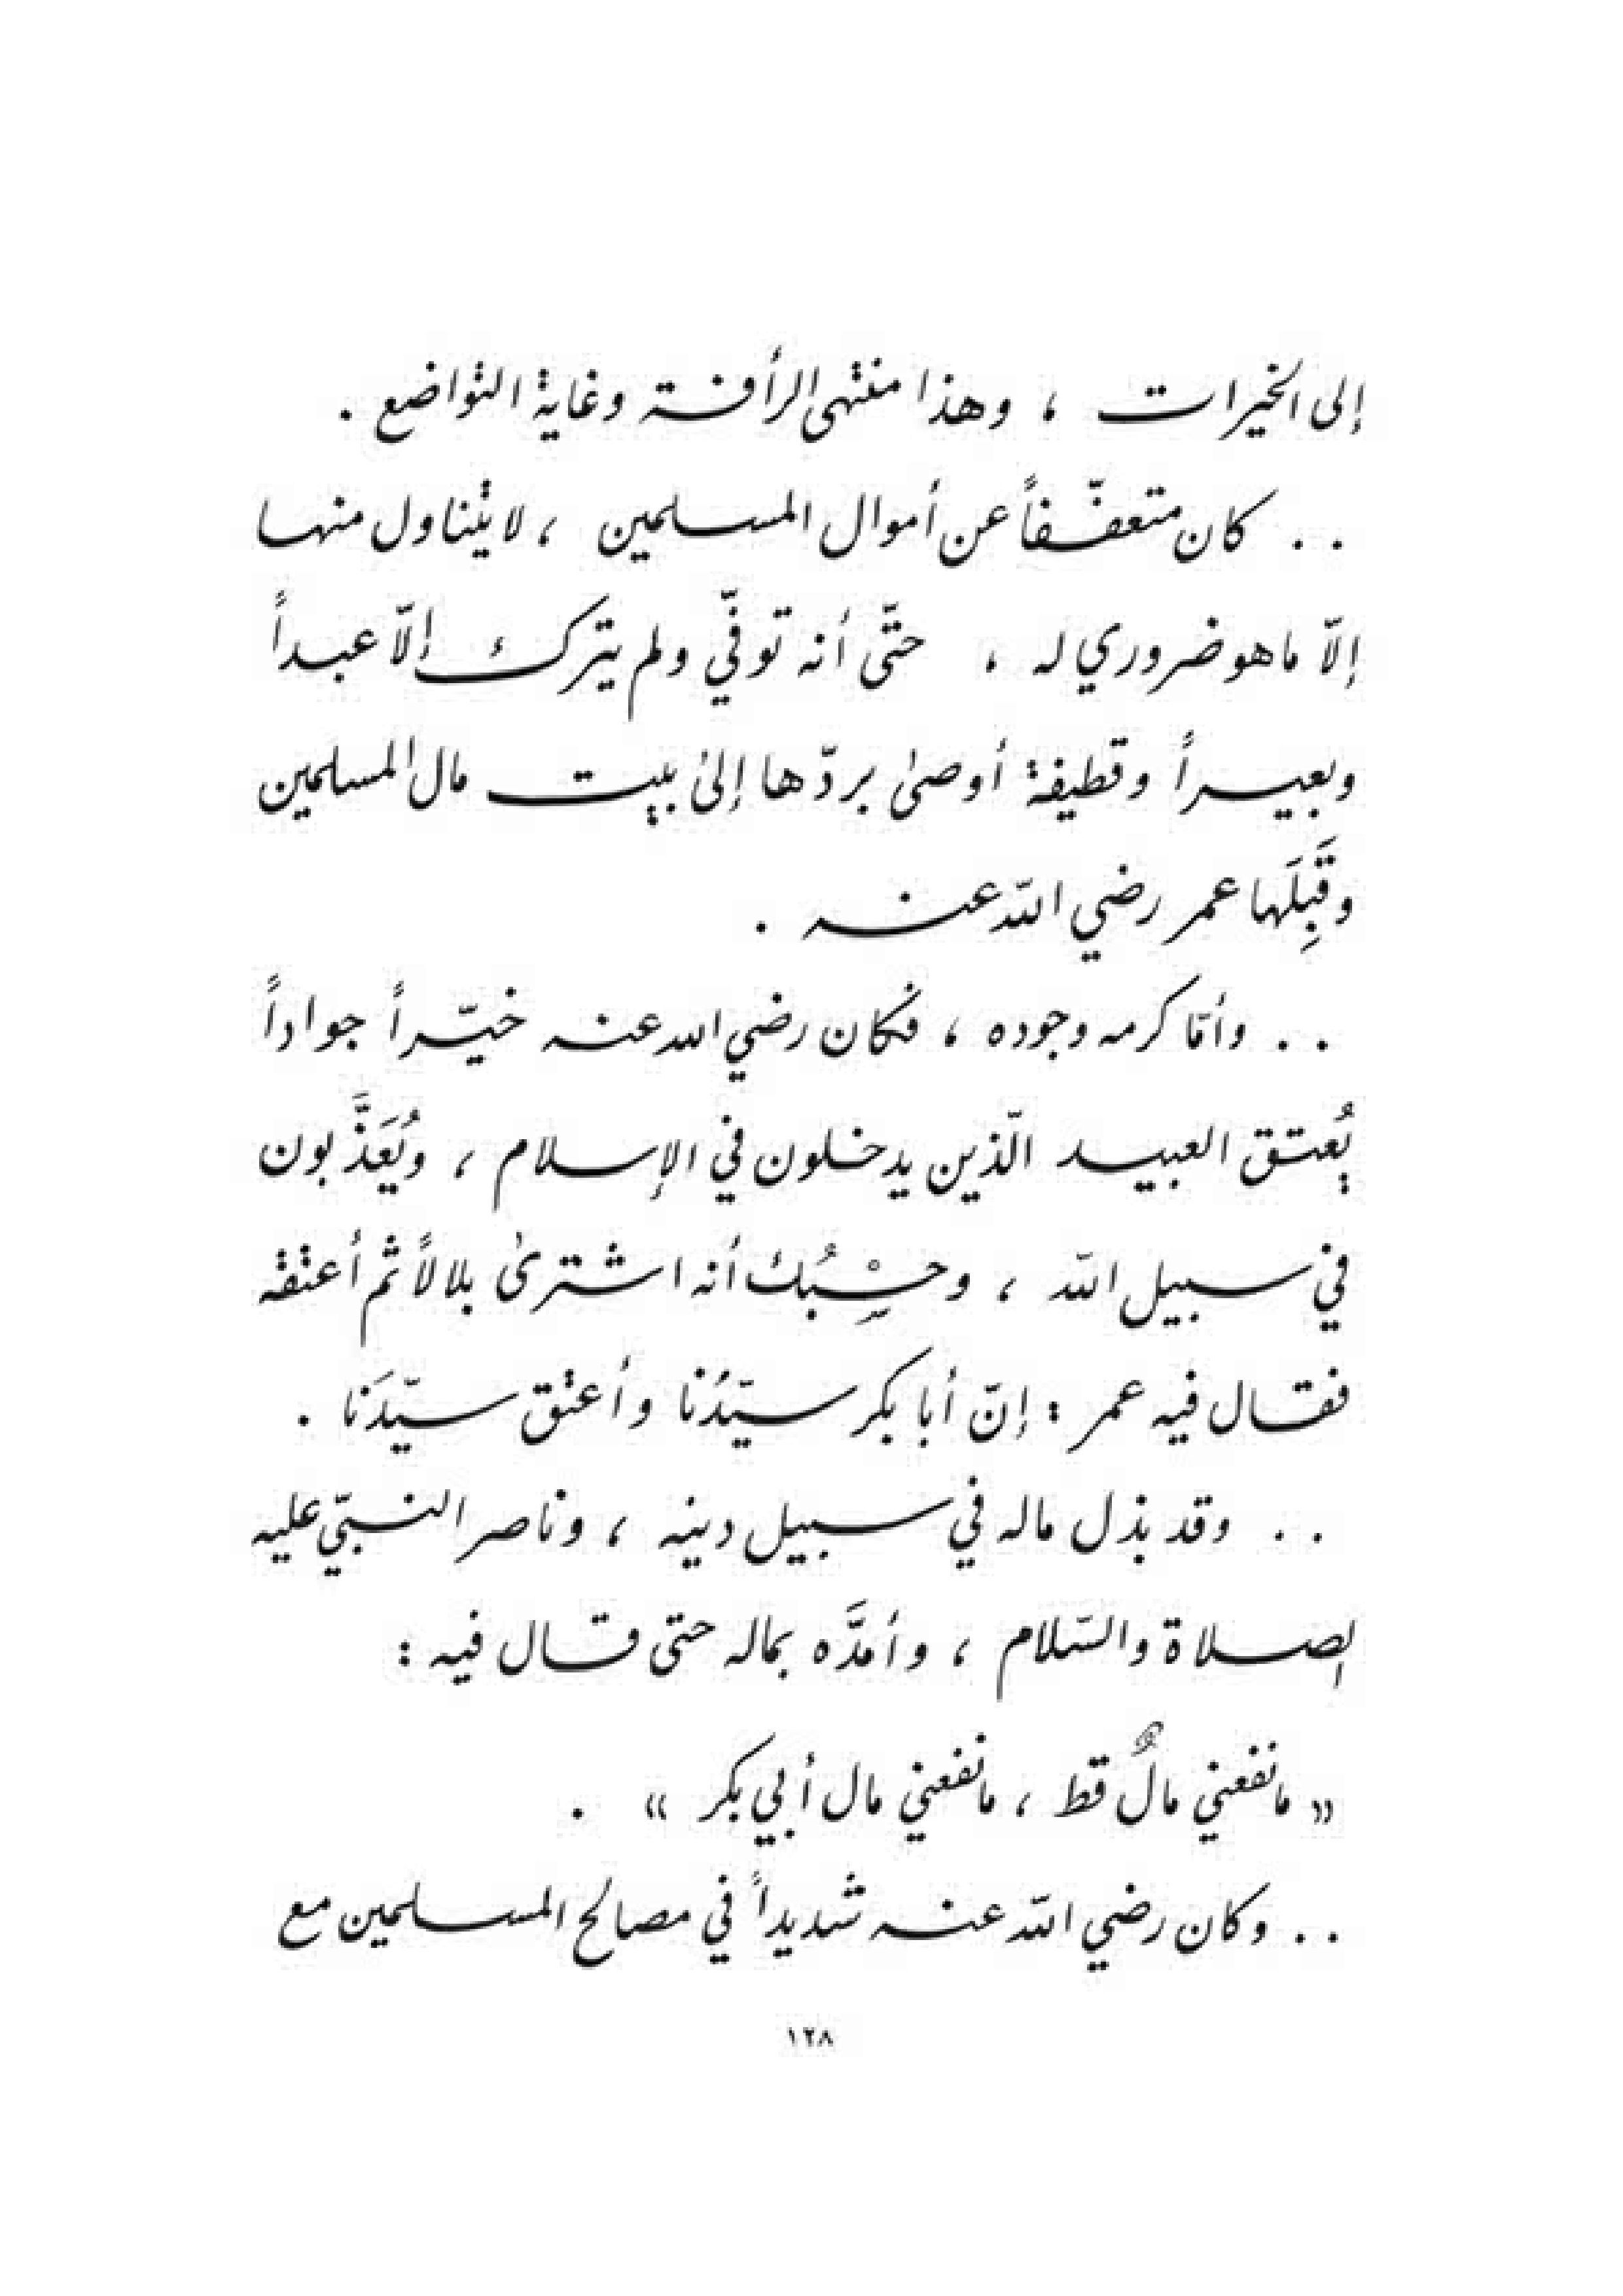 إلى الخيرات ، وهذا منتهى الرأفة وغاية التواضع .
. . كان متعفّفاً عن أموال المسلمين ، لا يتناول منها
إلّا ما هو ضروري له ، حتّى أنه توفّي ولم يترك إلّا عبداً
وبعيراً وقطيفة أوصىٰ بردّها إلىٰ بيت مال المسلمين
وقَبِلَها عمر رضي اللّه عنه .
. . وأمّا كرمه وجوده ، فكان رضي الله عنه خيّراً جواداً
يُعتق العبيد الّذين يدخلون في الإسلام ، ويُعَذَّبون
في سبيل اللّه ، وحسْبُك أنه اشترىٰ بلالاً ثم أعتقه
فقال فيه عمر : إنّ أبا بكر سيّدُنا وأعتق سيّدَنا .
. . وقد بذل ماله في سبيل دينه ، وناصر النبيّ عليه
لصلاة والسّلام ، وأمدَّه بماله حتى قال فيه :
« ما نفعني مالٌ قط ، ما نفعني مال أبي بكر » .
. . وكان رضي اللّه عنه شديداً في مصالح المسلمين مع
١٢٨